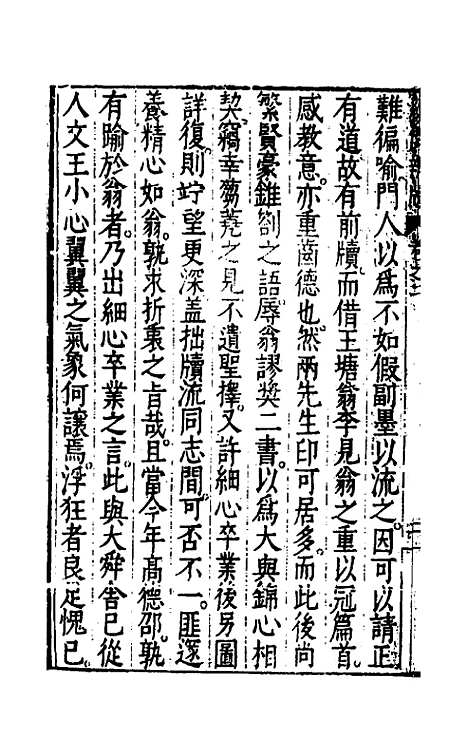 難徧喻門人以爲不如假副墨以流之因可以請正
有道故有前牘而借王塘翁李見翁之重以冠篇首
感教意亦重齒德也然兩先生印可居多而此後尚
繁賢豪錐劄之語辱翁謬奬二書以爲大與鄙心相
契竊幸蒭蕘之見不遺聖擇又許細心卒業後另圖
詳復則竚望更深盖拙牘流同志間可否不一匪邃
養精心如翁孰求折衷之旨哉且當今年髙德邵孰
有踰於翁者乃出細心卒業之言此與大舜舎已從
人文王小心翼翼之氣象何讓焉浮狂者良足愧已